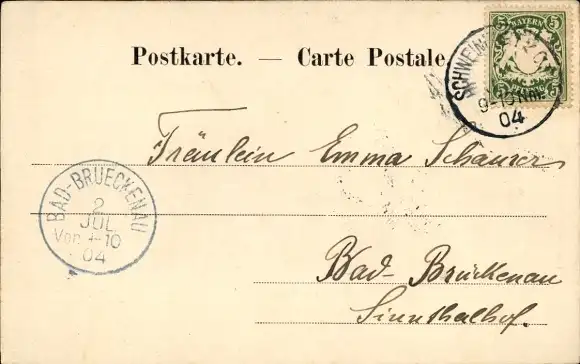 Postkarte. — Carte Postale.
5 BAYERN 5
5 PFENNIG 5
9-10 NM.
04
Fräulein Emma Schaurer
BAD-BRUECKENAU
2
JUL
Vor. 10
04
Bad-Brückenau
Sinnthalhof.